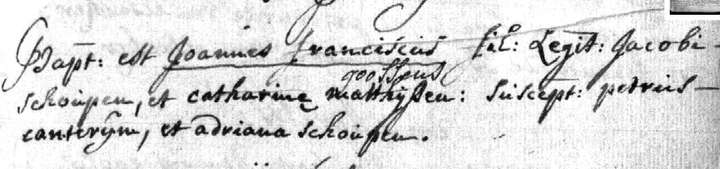 Bapt: est Joannes Franciscus fil: Legit: Jacobi
goossens
schoupen, et catharine matthijsen: suscept: petrus
canterijm, et adriana schoupen.